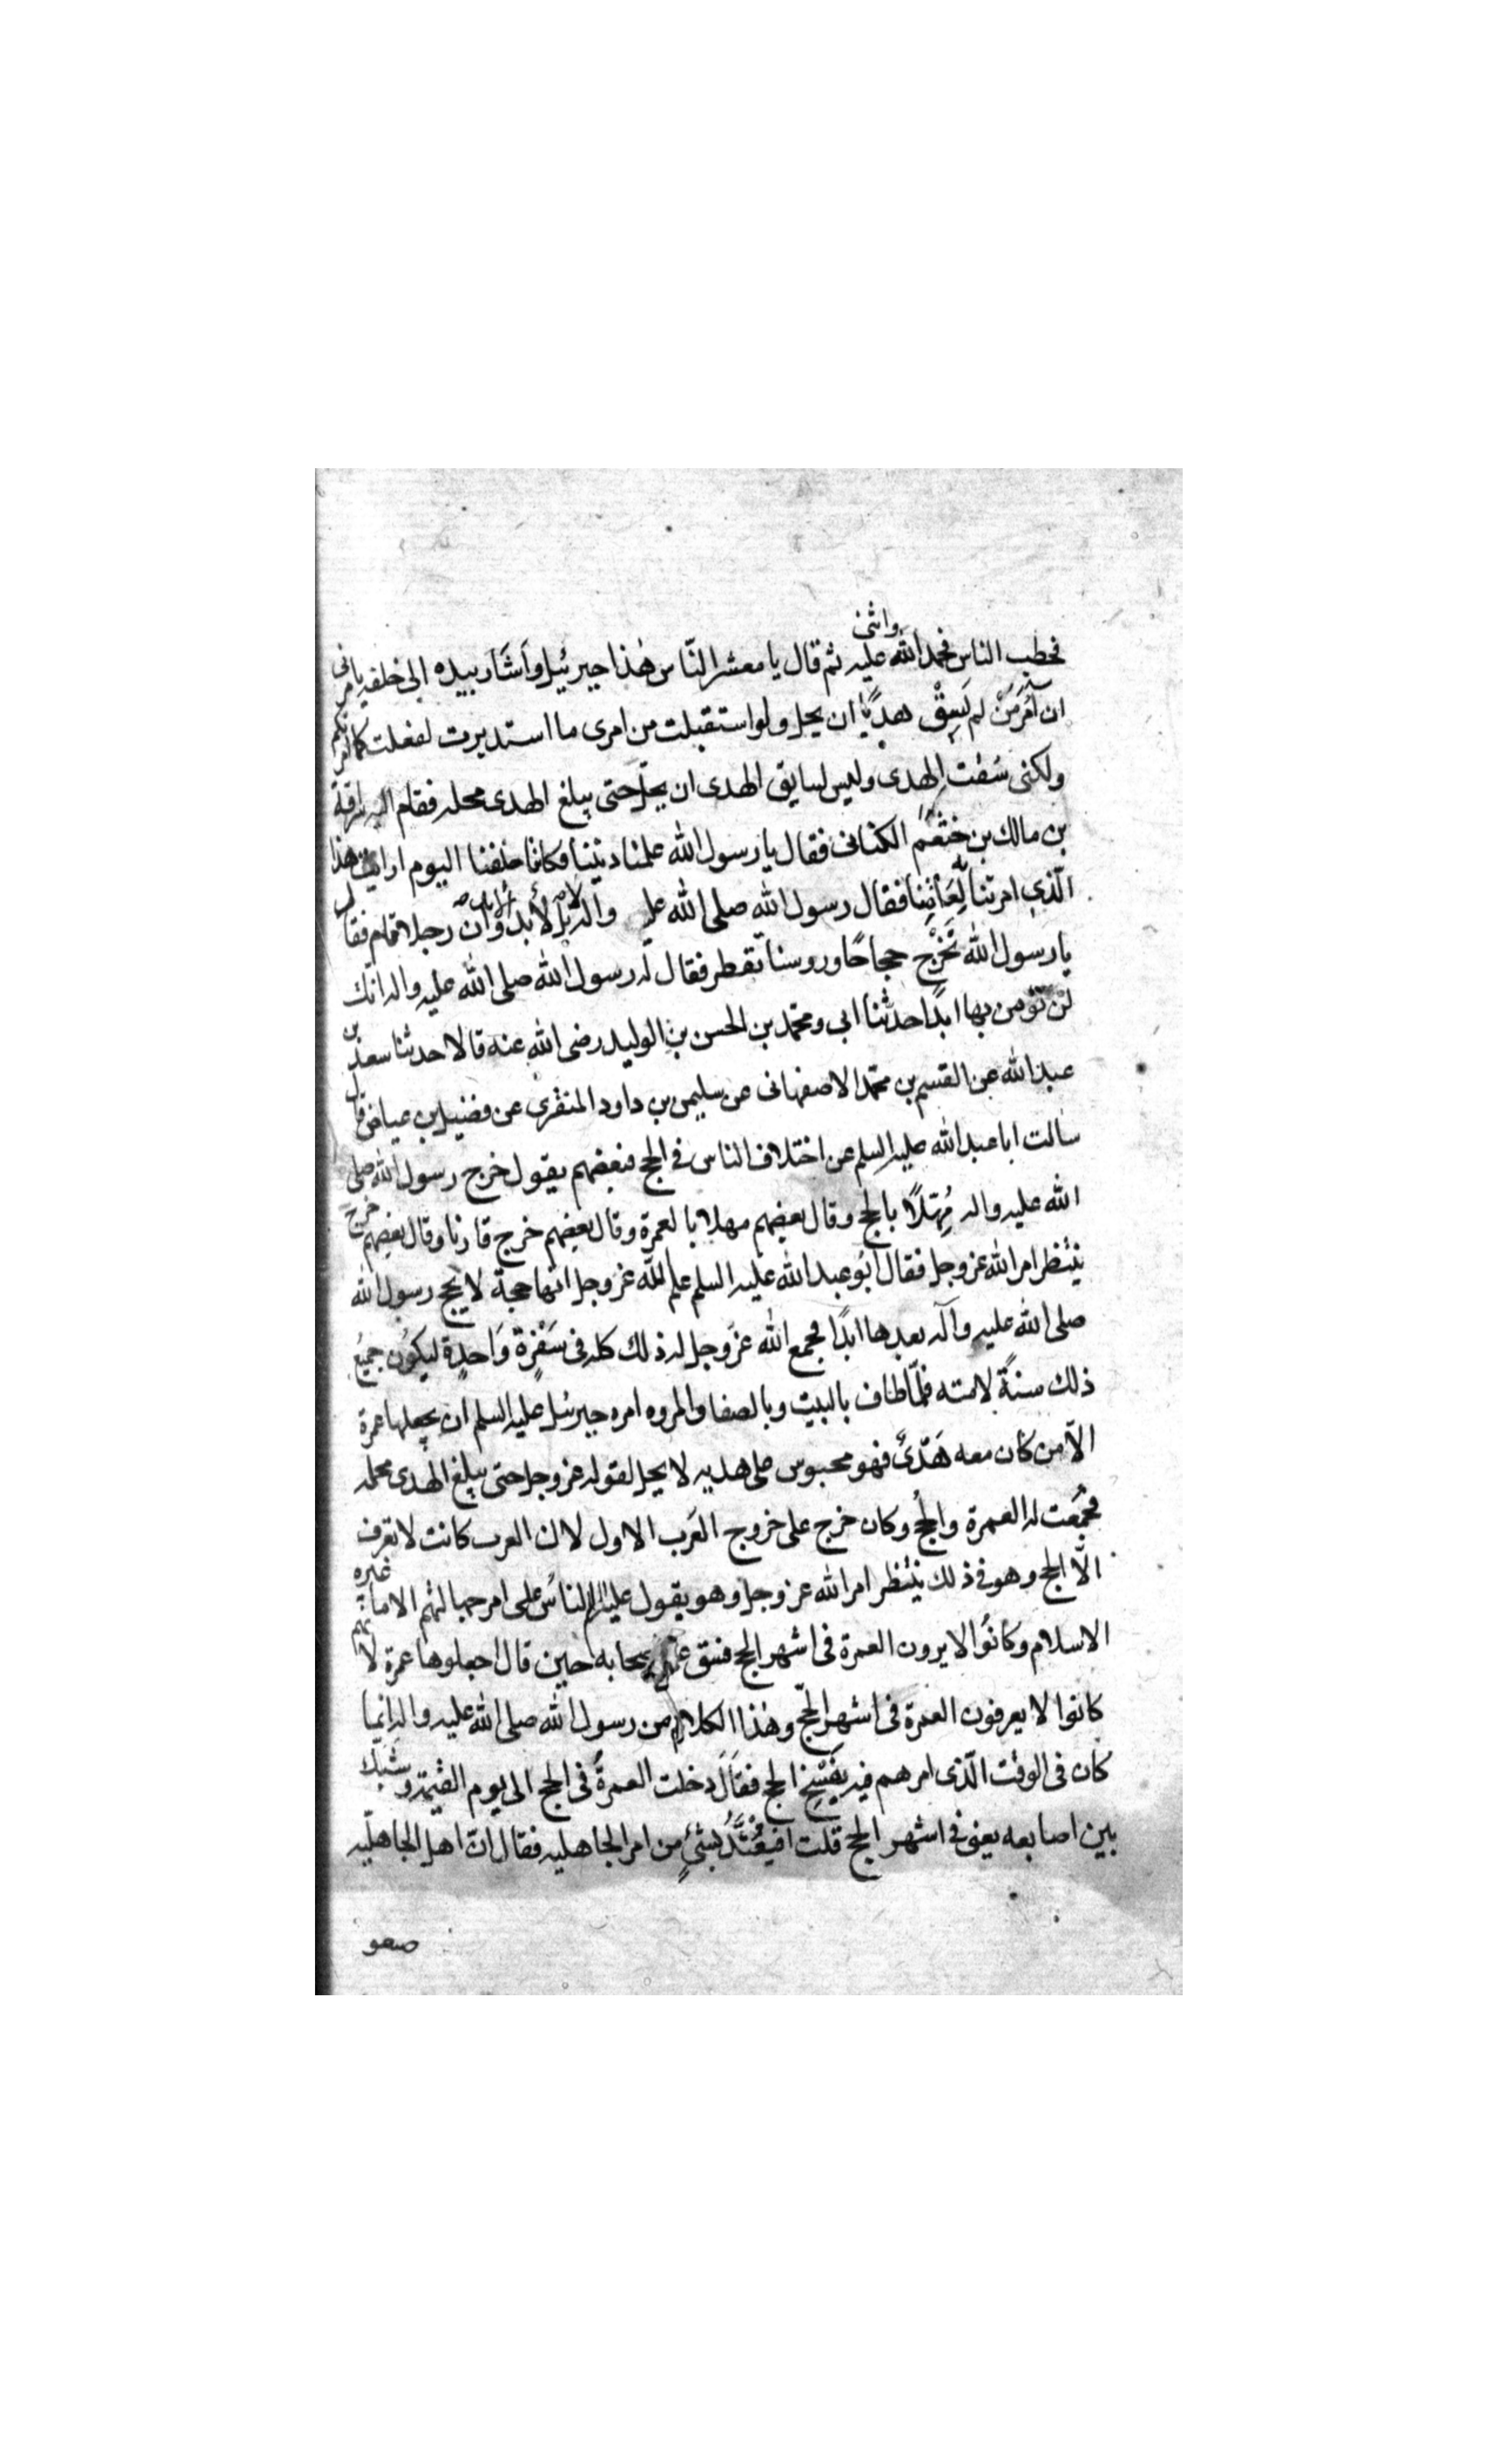 فخطب الناس فحمد الله واثنى عليه ثم قال يا معشر النّاس هٰذا جبرئيل وأشَارَ بيده إلى خلفه يامرنى
ان آمُرَ مَنْ لم يَسِقْ هديًا ان يحل ولو استقبلت من امرى ما استدبرت لفعلت كما امرتكم
ولكنى سُقت الهدى وليس لسايق الهدى ان يحِلّ حتى يبلغ الهدى محله فقام اليه سراقة
بن مالك بن خثعم الكنانى فقال يا رسول الله علمنا ديننا فكانا خلقنا اليوم ارايت هذا
الّذى امرتنا به لِعَامِنا فقال رسول الله صلى الله عليه والہ بل لا بد وان رجلا قام فقال
يا رسول الله نَخْرُج حجاجًا وروسنا تقطر فقال له رسول الله صلى الله عليه واله انّك
لن تؤمن بها ابدًا حدثنا ابى ومحمّد بن الحسن بن الوليد رضى الله عنه قالا حدثنا سعد بن
عبد الله عن القسم بن محمّد الاصفهانى عن سليمن بن داود المنقرى عن فضيل بن عياض قال
سالت ابا عبد الله عليه السلم عن اختلاف الناس فى الحج فبعضهم يقول خرج رسول الله صلى
الله عليه واله مُهِلًّا بالحج وقال بعضهم مهلا بالعمرة وقال بعضهم خرج قارنا وقال بعضهم خرج
ينتظر امر الله عز وجل فقال ابُو عبد الله عليه السلم علم اللّه عز وجل انها حجة لا يحج رسول الله
صلى الله عليه وآله بعدها ابدًا فجمع الله عزّ وجل له ذلك كله فى سَفْرَة وَاحدة ليكوُن جميع
ذلك سنةً لامته فلمّا طاف بالبيت وبالصفا والمروه امره جبرئيل عليه السلم ان يجعلها عمرة
الّا من كان معه هَدْىٌ فهو محبوس على هديه لا يحل لقوله عز وجل حتى يبلغ الهدى محله
فجُمِعت له العمرة والحج وكان خرج على خروج العَرب الاول لان العرب كانت لا تعرف
الّا الحج وهو فى ذلك ينتظر امر الله عز وجل وهو يقول عليه السلم الناسُ على امر جاهليتهم الا ما غيره
الاسلام وكانُوا لا يرون العمرة فى اشهر الحج فشق على اصحابه حين قال اجعلوها عمرة لانهم
كانوا لا يعرفون العمرة فى اشهر الحجّ وهٰذا الكلام من رسول الله صلى الله عليه واله انّما
كان فى الوقت الّذى امرهم فيه بفَسْخِ الحج فقالَ دخلت العمرةُ فى الحج الى يوم القيمة وشبك
بين اصابعه يعنى فى اشهر الحج قلت افيُعْتَدُّ بشئٍ من امر الجاهليه فقال انّ اهل الجاهليّه